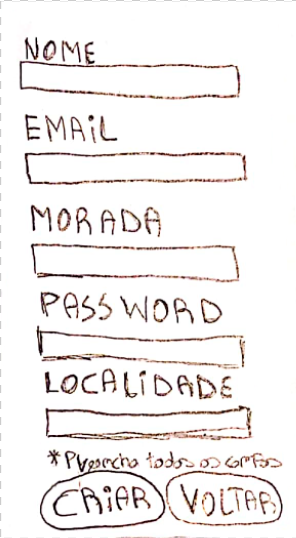 NOME
EMAiL
MORADA
PASSWORD
LOCALiDADE
*Preencha todos os campos
CRiAR VOLTAR